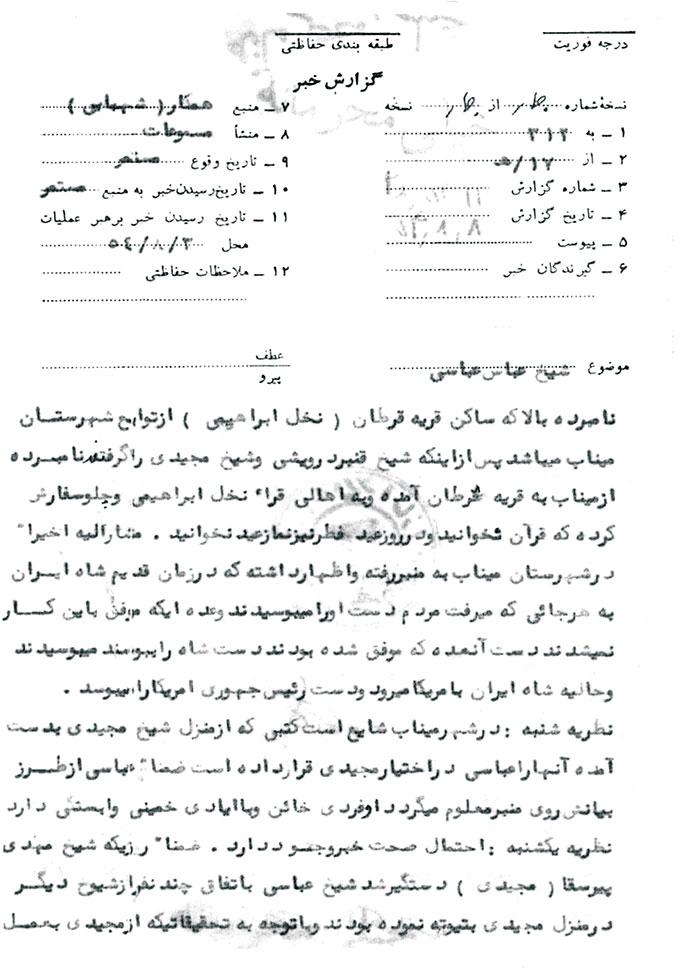 درجه فوریت
طبقه بندی حفاظتی
گزارش خبر
نسخهٔ شماره چهار از چهار نسخه
۱ ــ به ۳۱۲
۲ ــ از ۱۷/هـ
۳ ــ شماره گزارش
۴ ــ تاریخ گزارش
۵ ــ پیوست
۶ ــ گیرندگان خبر
۷ ــ منبع همکار (شهبابی)
۸ ــ منشأ مسموعات
۹ ــ تاریخ وقوع مستمر
۱۰ ــ تاریخ رسیدن خبر به منبع مستمر
۱۱ ــ تاریخ رسیدن خبر برهبر عملیات
محل ۵۴/۸/۳
۱۲ ــ ملاحظات حفاظتی
موضوع شیخ عباس عباسی
عطف
پیرو
نامبرده بالا که ساکن قریه قرطان ( نخل ابراهیمی ) از توابع شهرستان
میناب میباشد پس از اینکه شیخ قنبر درویشی و شیخ مجیدی را گرفتند نامبرده
از میناب به قریه آمده و به اهالی قراء نخل ابراهیمی و چلو سفارش
کرده که قرآن نخوانید و در روز عید فطر نیز نماز عید نخوانید . مشارالیه اخیراً
در شهرستان میناب به منبر رفته و اظهار داشته که در زمان قدیم شاه ایران
به هر جائی که میرفت مردم دست او را میبوسیدند و عده ایکه موفق باین کار
نمیشدند دست آنعده که موفق شده بودند دست شاه را ببوسند میبوسیدند
و حالیه شاه ایران بامریکا میرود و دست رئیس جمهوری امریکا را میبوسد .
نظریه شنبه : در شهر میناب شایع است کتبی که از منزل شیخ مجیدی بدست
آمده آنها را عباسی در اختیار مجیدی قرار داده است ضمناً عباسی از طرز
بیانش روی منبر معلوم میگردد او فردی خائن و با ایادی خمینی وابستگی دارد
نظریه یکشنبه : احتمال صحت خبر وجود دارد . ضمناً روزیکه شیخ مهدی
پیرسقا ( مجیدی ) دستگیر شد شیخ عباسی باتفاق چند نفر از شیوخ دیگر
در منزل مجیدی بیتوته نموده بودند و با توجه به تحقیقاتیکه از مجیدی بعمل